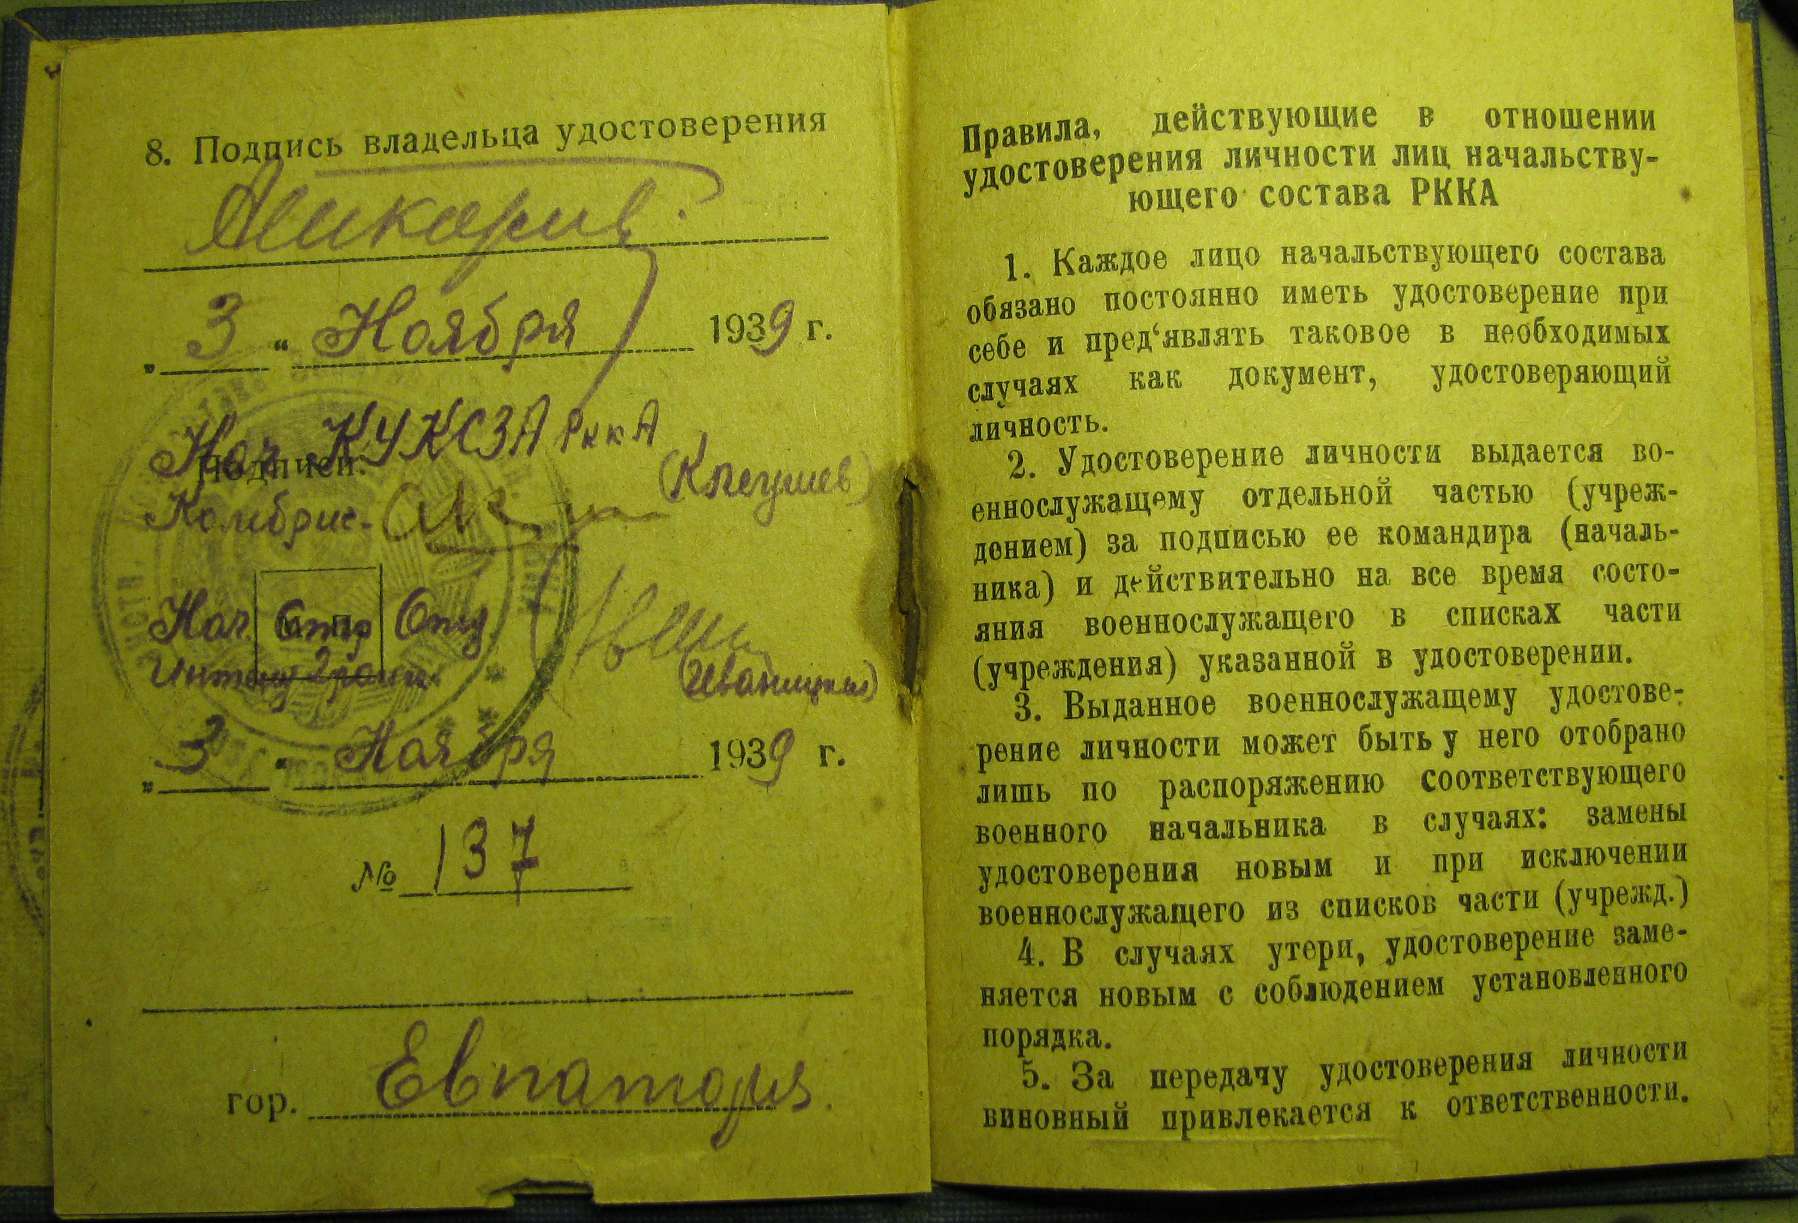 8. Подпись владельца удостоверения
„ 3 “ Ноября 1939 г.
Нач. КУКСЗА РККА
Подписи:
Комбриг
Нач. Отд
„ 3 “ Ноября 1939 г.
№ 137
гор. Евпатория
Правила, действующие в отношении
удостоверения личности лиц начальству-
ющего состава РККА
1. Каждое лицо начальствующего состава
обязано постоянно иметь удостоверение при
себе и пред‘являть таковое в необходимых
случаях как документ, удостоверяющий
личность.
2. Удостоверение личности выдается во-
еннослужащему отдельной частью (учреж-
дением) за подписью ее командира (началь-
ника) и действительно на все время состо-
яния военнослужащего в списках части
(учреждения) указанной в удостоверении.
3. Выданное военнослужащему удостове-
рение личности может быть у него отобрано
лишь по распоряжению соответствующего
военного начальника в случаях: замены
удостоверения новым и при исключении
военнослужащего из списков части (учрежд.)
4. В случаях утери, удостоверение заме-
няется новым с соблюдением установленного
порядка.
5. За передачу удостоверения личности
виновный привлекается к ответственности.